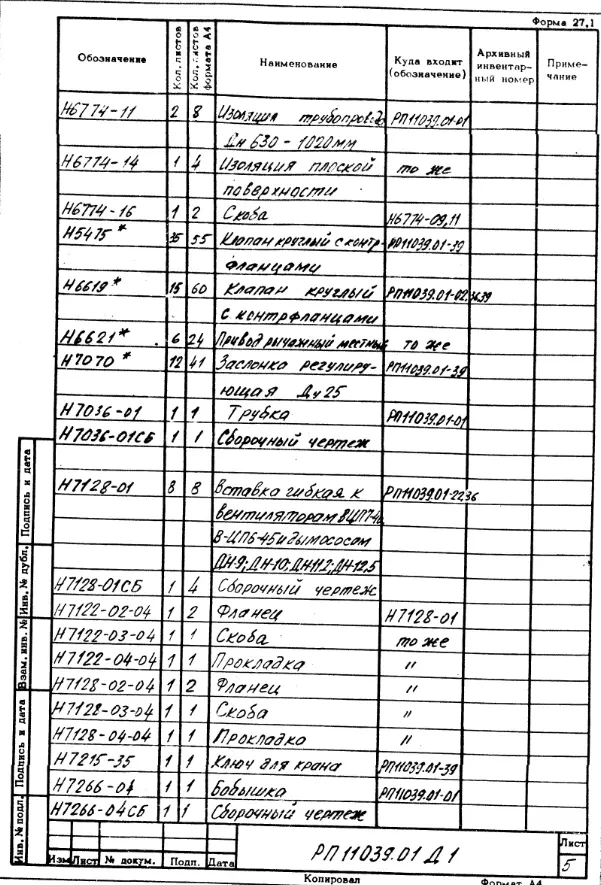 Форма 27,1
Обозначение Кол. листов Кол. листов формата А4 Наименование Куда входит (обозначение) Архивный инвентар-ный номер Приме-чание
Н6774-11 2 8 Изоляция трубопровода РП11039.01-01
Дн 630 - 1020мм
Н6774-14 1 4 Изоляция плоской то же
поверхности
Н6774-16 1 2 Скоба Н6774-09,11
Н5475* 35 55 Клапан круглый с контр- РП11039.01-39
фланцами
Н6619* 15 60 Клапан круглый РП11039.01-02
с контрфланцами
Н6621* 6 24 Привод рычажный местный то же
Н7070* 12 41 Заслонка регулиру- РП11039.01-39
ющая Ду25
Н7036-01 1 1 Трубка РП11039.01-01
Н7036-01СБ 1 1 Сборочный чертеж
Н7128-01 8 8 Вставка гибкая к РП11039.01-22
вентиляторам
и дымососам
ДН-9; ДН-10; ДН-11,2; ДН-12,5
Н7128-01СБ 1 4 Сборочный чертеж
Н7122-02-04 1 2 Фланец Н7128-01
Н7122-03-04 1 1 Скоба то же
Н7122-04-04 1 1 Прокладка "
Н7128-02-04 1 2 Фланец "
Н7128-03-04 1 1 Скоба "
Н7128-04-04 1 1 Прокладка "
Н7215-35 1 1 Ключ для крана РП11039.01-39
Н7266-04 1 1 Бобышка РП11039.01-01
Н7266-04СБ 1 1 Сборочный чертеж
Инв. № подл. Подпись и дата Взам. инв. № Инв. № дубл. Подпись и дата
Изм Лист № докум. Подп. Дата
РП 11039.01 Д1
Лист
5
Копировал Формат А4